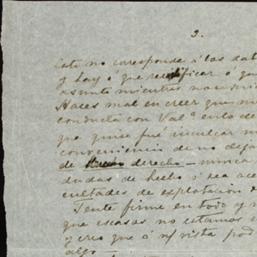 3.
Esto no corresponde á las dat
y hay ó que rectificar ó qu
asunto mientras no se
Haces mal en creer que mi
conducta con Val.ª en lo de
que quise fué inculcar
conveniencia de no deja
de derecho — nunca
dudas de hecho ó sea ac
cultades de explotacion
Tente firme en todo y n
que escasas no estamos
y creo que á n/ vista pod
algo